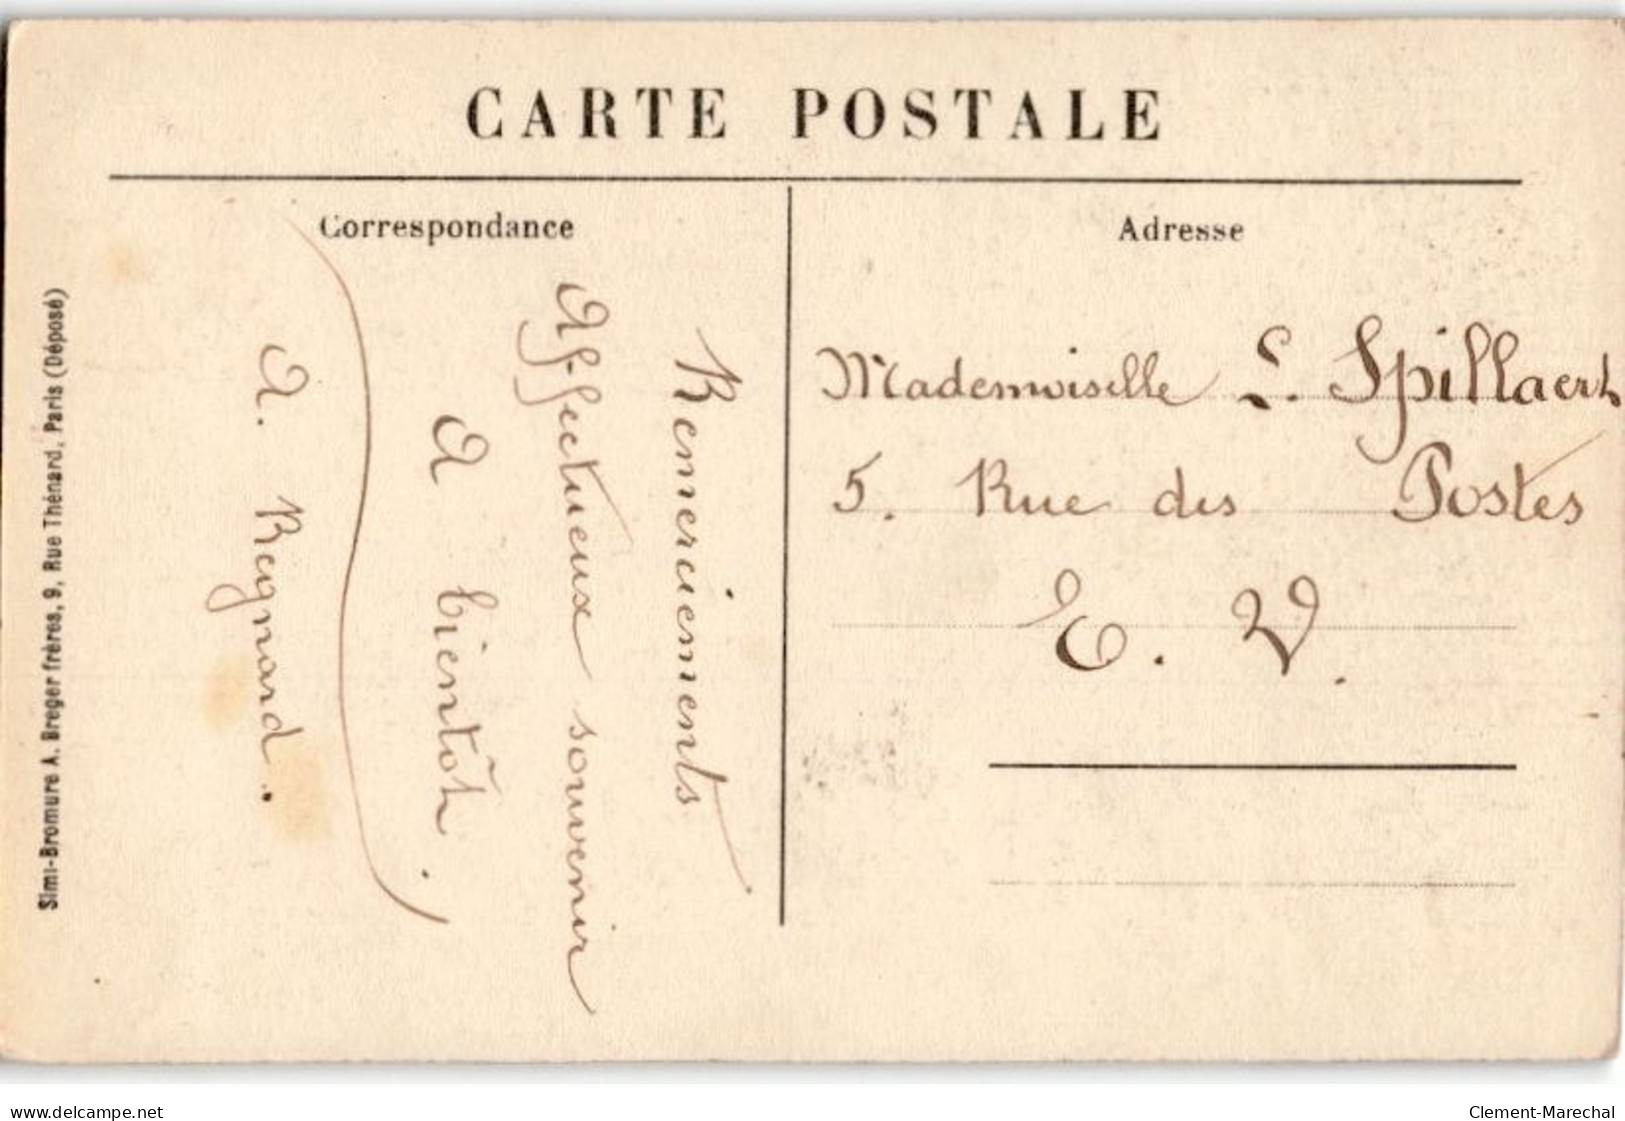 CARTE POSTALE
Correspondance
Remerciements
Affectueux souvenir
A bientôt.
A. Regnard.
Adresse
Mademoiselle S. Spillaert
5. Rue des Postes
E. V.
Simi-Bromure A. Breger frères, 9, Rue Thénard, Paris (Déposé)
www.delcampe.net
Clement-Marechal